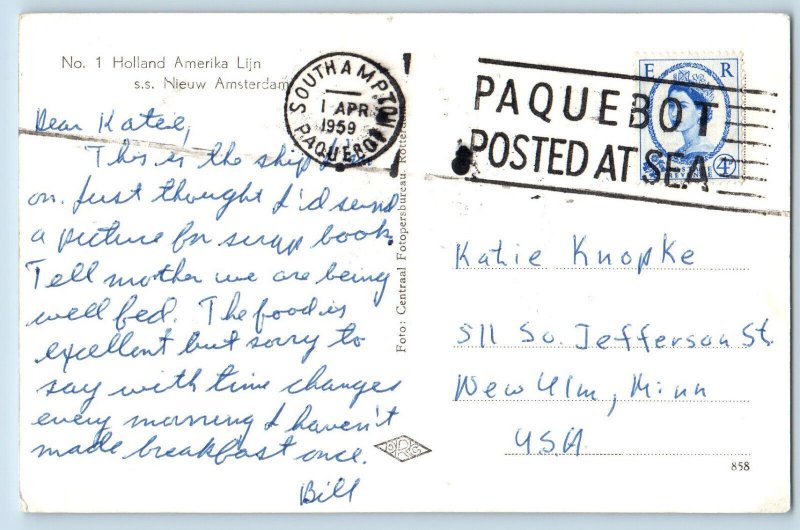 No. 1 Holland Amerika Lijn
s.s. Nieuw Amsterdam
SOUTHAMPTON
1 APR
1959
PAQUEBOT
PAQUEBOT
POSTED AT SEA
E R
4D
Dear Katie,
This is the ship
on. Just thought I'd send
a picture for scrap book.
Tell mother we are being
well fed. The food is
excellent but sorry to
say with time changes
every morning I haven't
made breakfast once.
Bill
Foto: Centraal Fotopersbureau. Rotter
Katie Knopke
511 So. Jefferson St.
New Ulm, Minn
USA
858